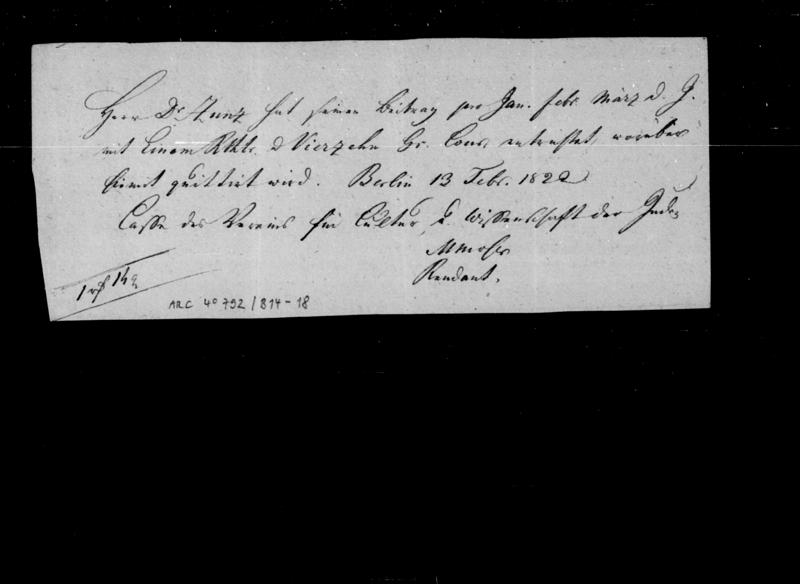 Herr Dr. Zunz hat seinen Beitrag pro Jan. febr. März d. J.
mit Einem Rthlr. & Vierzehn Gr. Cour. entrichtet, worüber
hiermit quittirt wird. Berlin 13 Febr. 1822
Casse des Vereins für Cultur & Wissenschaft der Juden
M Moser
Rendant.
1 rf 14 g
ARC 4° 792 / B14-18